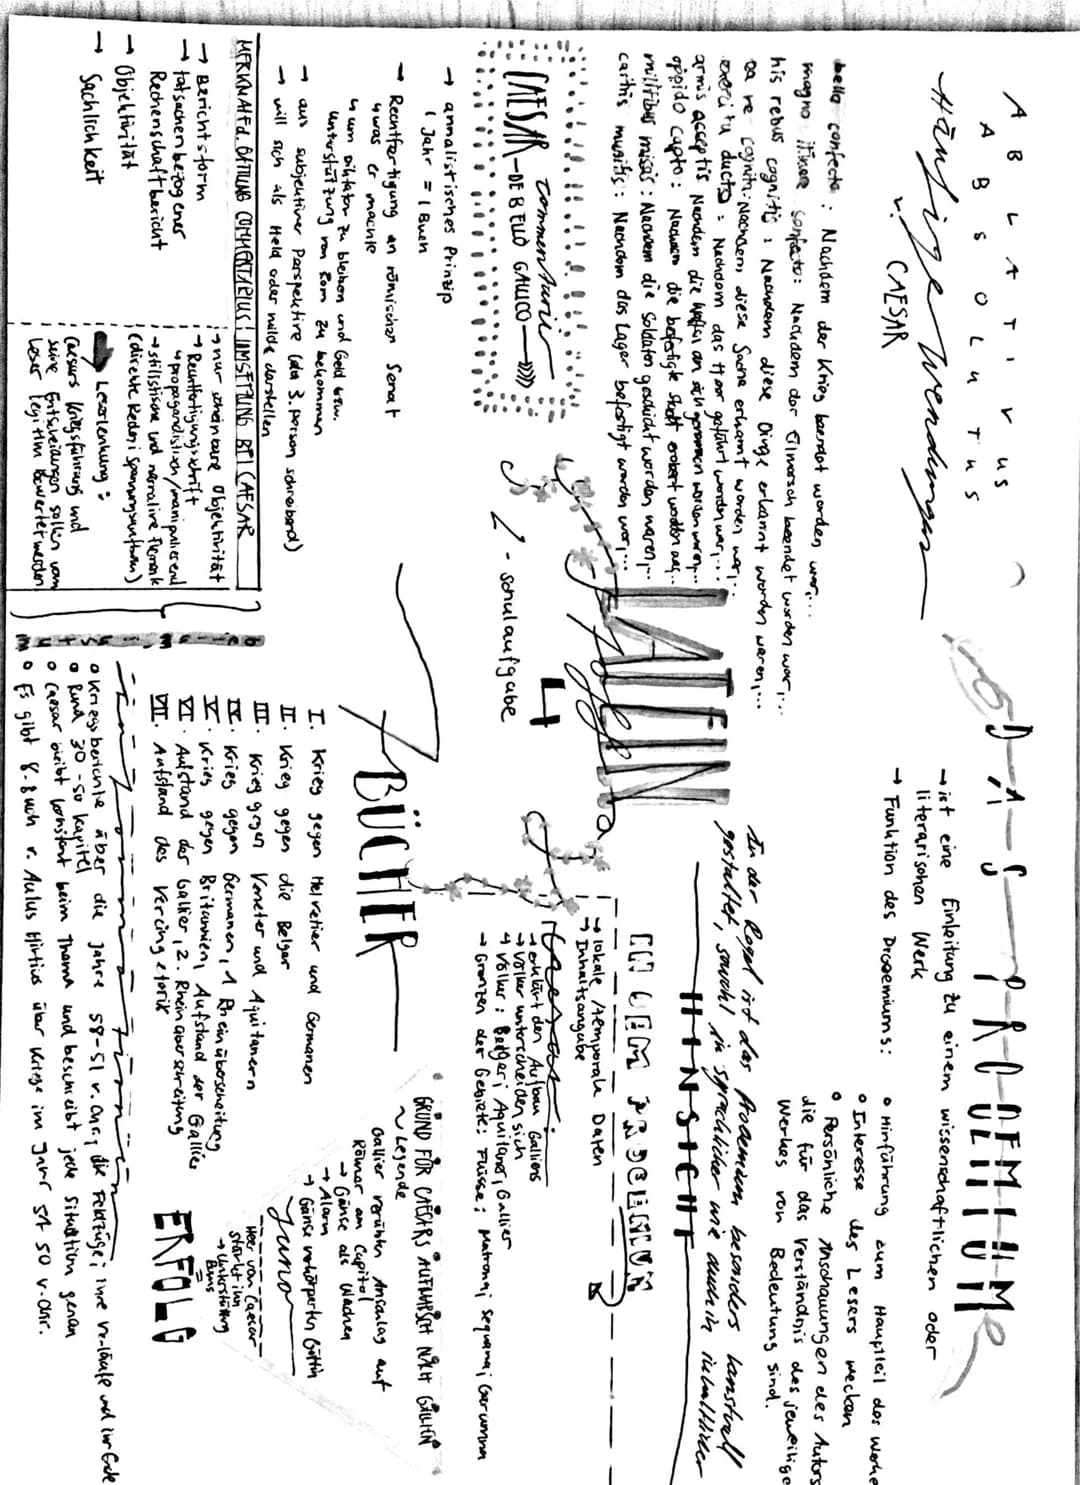 ABLATIVUS
ABSOLUTUS
Häufige Wendungen
v. CAESAR
bello confecto: Nachdem der Krieg beendet worden war,...
magno itinere confecto: Nachdem der Eilmarsch beendet worden war,...
his rebus cognitis: Nachdem diese Dinge erkannt worden waren,...
ea re cognita: Nachdem diese Sache erkannt worden war,...
exercitu ducto: Nachdem das Heer geführt worden war,...
armis acceptis: Nachdem die Waffen an sich genommen worden waren,...
oppido capto: Nachdem die befestigte Stadt erobert worden war,...
militibus missis: Nachdem die Soldaten geschickt worden waren,...
castris munitis: Nachdem das Lager befestigt worden war,...
CAESAR commentarii
-DE BELLO GALLICO-
→ annalistisches Prinzip
1 Jahr = 1 Buch
→ Rechtfertigung an römischen Senat
↳ was er machte
↳ um Diktator zu bleiben und Geld bzw.
Unterstützung von Rom zu bekommen
→ aus subjektiver Perspektive (da 3. Person schreibend)
→ will sich als Held oder milde darstellen
MERKMALE d. GATTUNG COMMENTARIUS
→ Berichtsform
→ tatsachenbezogener
Rechenschaftbericht
→ Objektivität
→ Sachlichkeit
UMSETZUNG BEI CAESAR
→ nur scheinbare Objektivität
→ Rechtfertigungsschrift
↳ propagandistisch/manipulierend
→ stilistische und narrative Elemente
(direkte Reden; Spannungsaufbau)
Leserlenkung:
Caesars Kriegsführung und
seine Entscheidungen sollen vom
Leser legitim bewertet werden
LATEIN
4
2. Schulaufgabe
DAS PROEMIUM
→ ist eine Einleitung zu einem wissenschaftlichen oder
literarischen Werk
→ Funktion des Prooemiums:
• Hinführung zum Hauptteil des Werke
• Interesse des Lesers wecken
• Persönliche Anschauungen des Autors
die für das Verständnis des jeweilige
Werkes von Bedeutung sind.
In der Regel ist das Prooemium besonders kunstvoll
gestaltet, sowohl in sprachlicher wie auch in inhaltlicher
HINSICHT
IN DEM PROEMIUM
→ lokale/temporale Daten
→ Inhaltsangabe
Caesar:
→ erklärt den Aufbau Galliens
→ Völker unterscheiden sich
↳ Völker: Belgae; Aquitaner, Gallier
→ Grenzen der Gebiete: Flüsse; Matrona; Sequana; Garumna
7 BÜCHER
I. Krieg gegen Helvetier und Germanen
II. Krieg gegen die Belger
III. Krieg gegen Veneter und Aquitanern
IV. Krieg gegen Germanen, 1 Rheinüberschreitung
V. Krieg gegen Britannien, Aufstand der Gallier
VI. Aufstand der Gallier, 2. Rheinüberschreitung
VII. Aufstand des Vercingetorix
GRUND FÜR CAESARS AUFMARSCH NACH GALLIEN
~ Legende
Gallier verübten Anschlag auf
Römer am Capitol
→ Gänse als Wachen
→ Alarm
→ Gänse verkörperten Göttin
Juno
Heer von Caesar
stärkt ihn
→ Unterstützung
ERFOLG
Informationen
• Kriegsberichte über die Jahre 58-51 v. Chr, die Feldzüge; ihre Verläufe und ihr Ende
• Rund 30-50 Kapitel
• Caesar bleibt konstant beim Thema und beschreibt jede Situation genau
• Es gibt 8. Buch v. Aulus Hirtius über Kriege im Jahr 51 50 v. Chr.